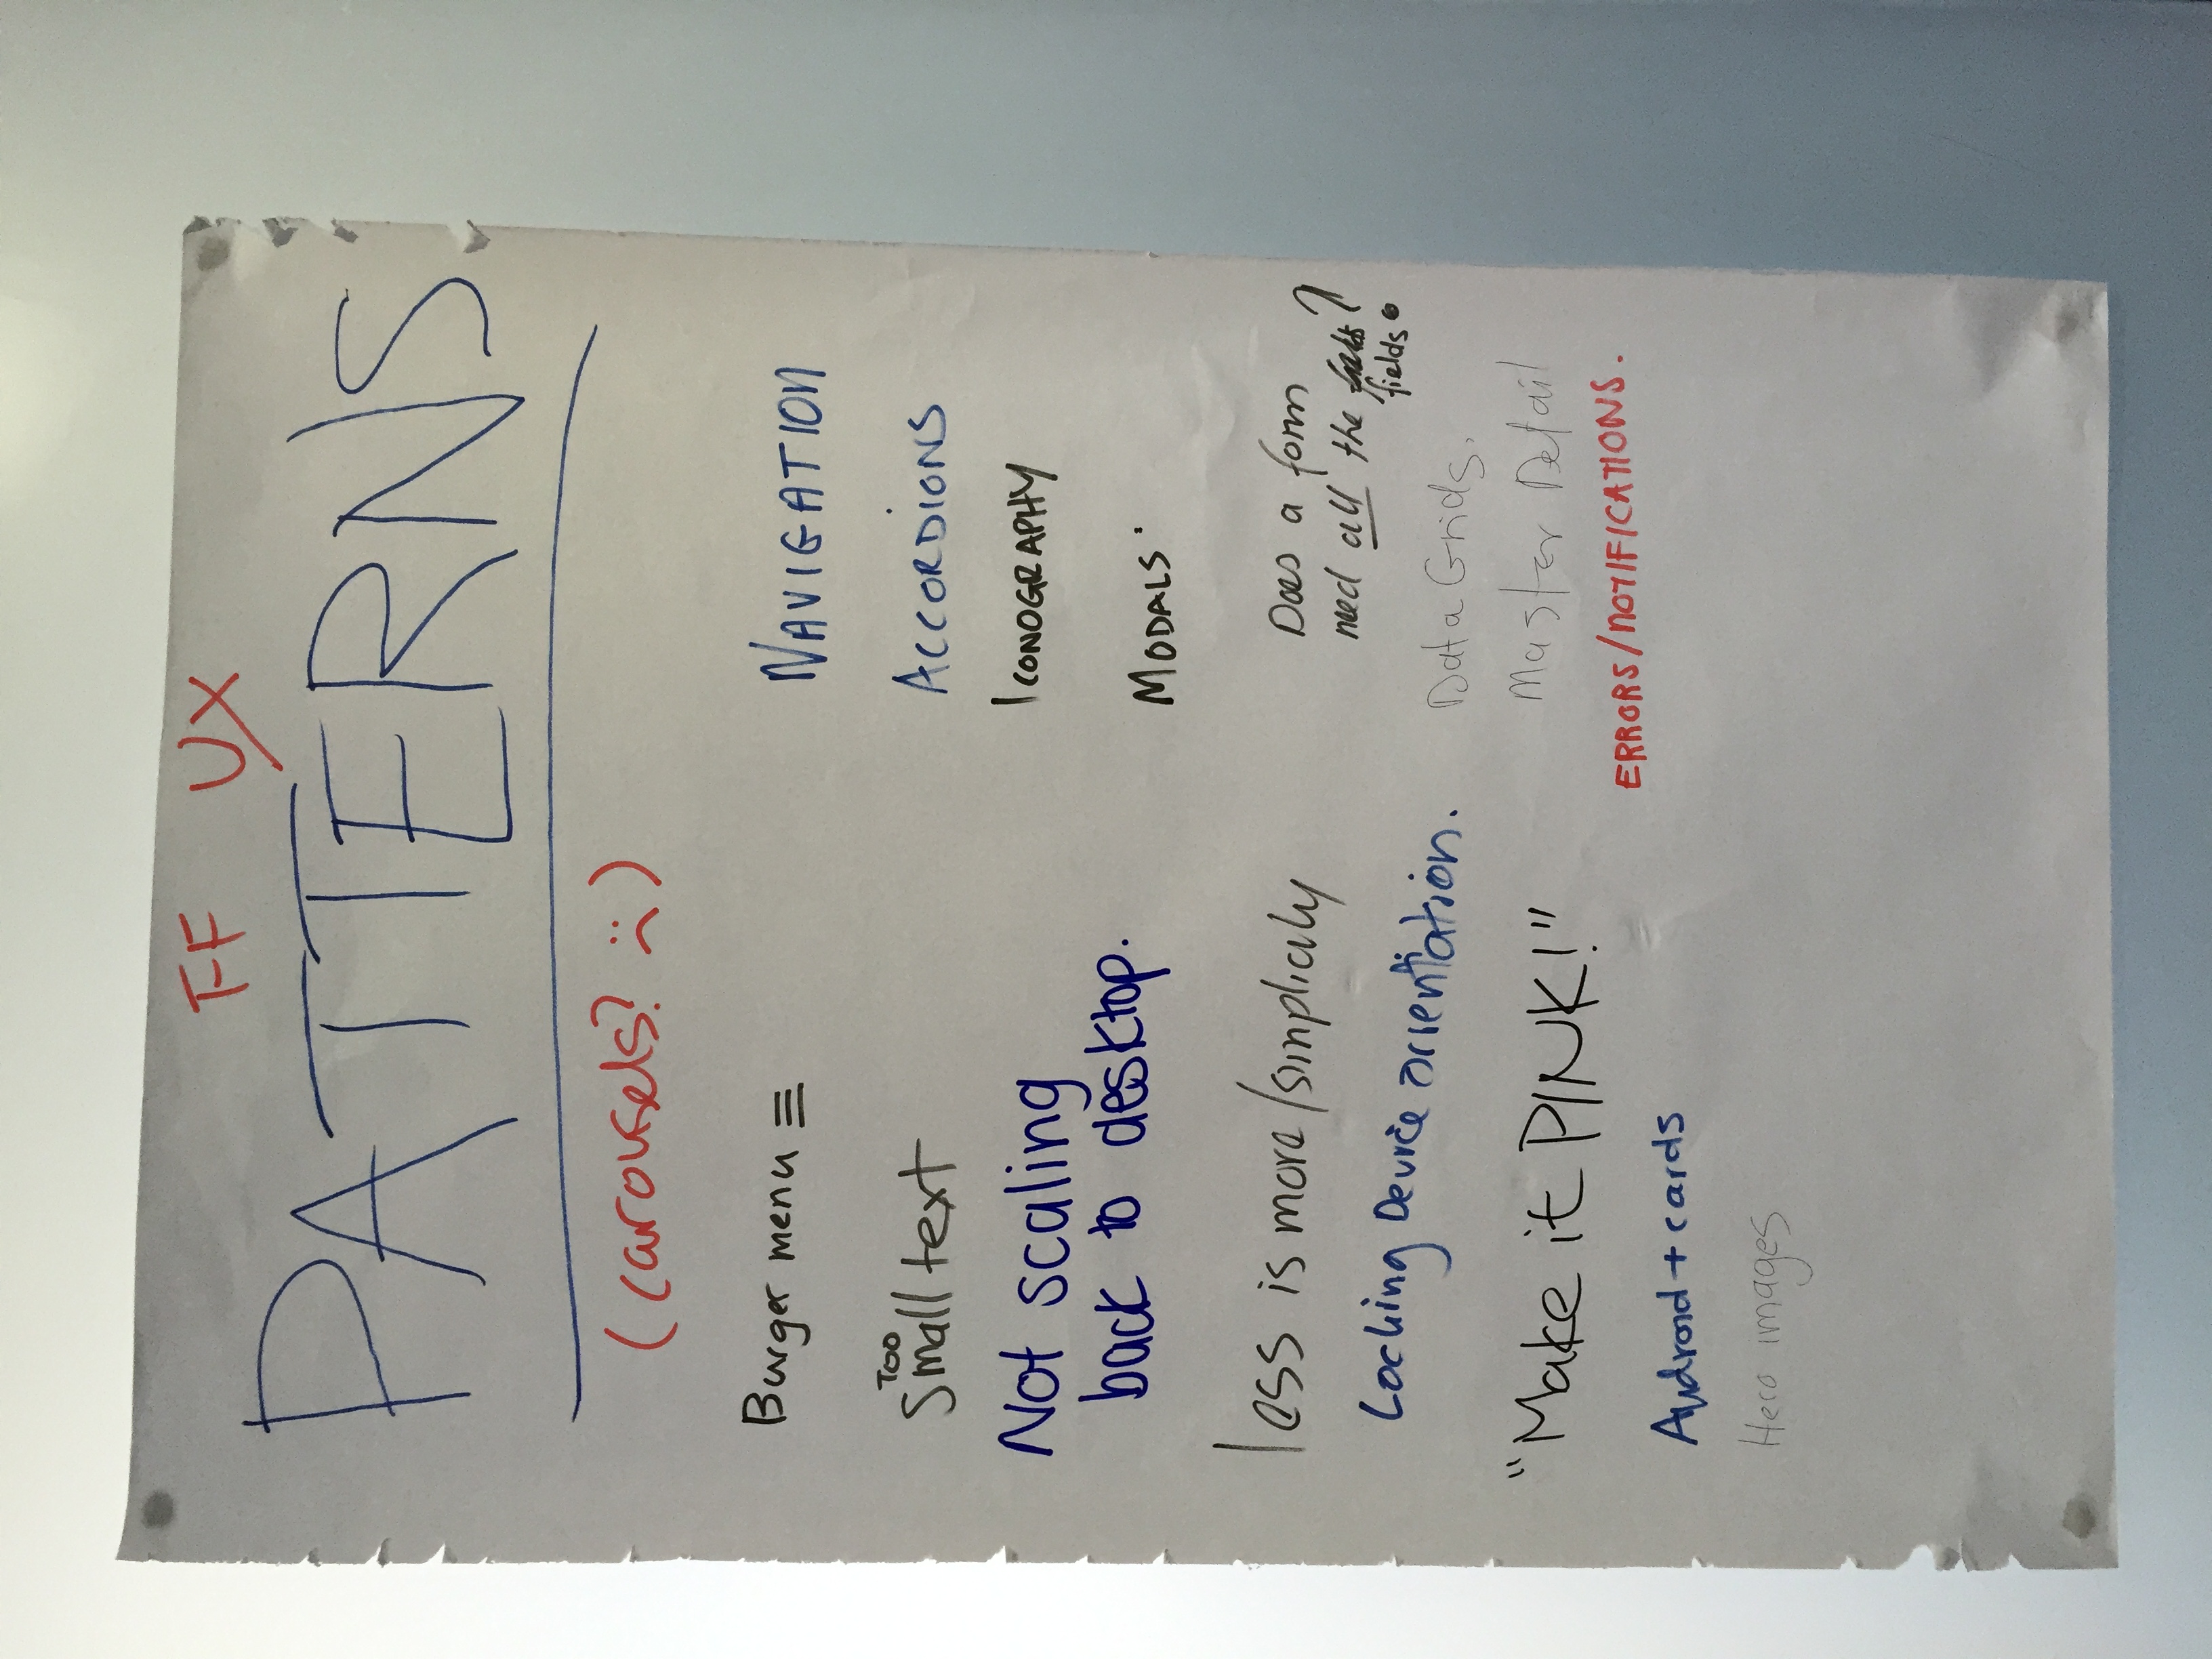 FF UX
PATTERNS
(carousels? :()
Burger menu ≡
Too
Small text
Not scaling
back to desktop.
less is more/simplicity
Locking Device orientation.
"Make it PINK!"
Android + cards
Hero images
NAVIGATION
ACCORDIONS
ICONOGRAPHY
MODALS
Does a form
need all the
fields?
Data Grids.
Master Detail
ERRORS/NOTIFICATIONS.